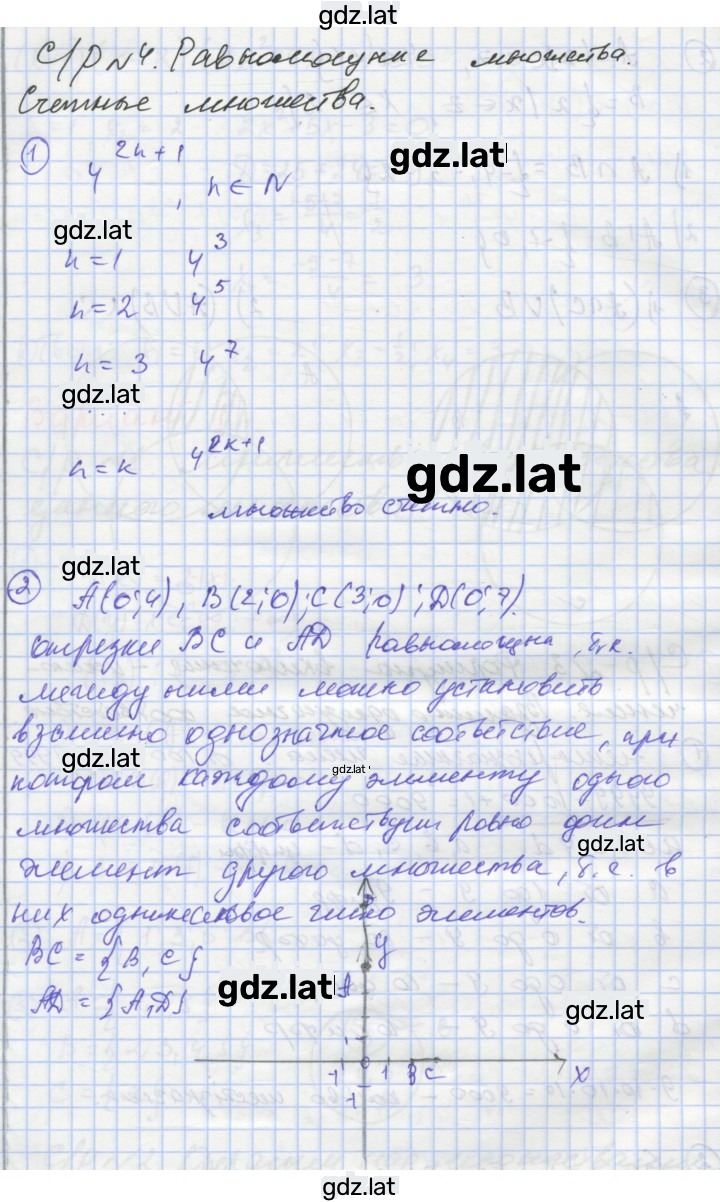 gdz.lat
С/Р №4. Равномощные множества.
Счетные множества.
① 4^{2n+1}, n ∈ N
gdz.lat
gdz.lat
n=1 4^3
n=2 4^5
n=3 4^7
gdz.lat
....
n=k 4^{2k+1}
gdz.lat
множество счетно.
gdz.lat
② A(0;4), B(2;0); C(3;0); D(0;7).
отрезки BC и AD равномощны, т.к.
между ними можно установить
взаимно однозначное соответствие, при
gdz.lat
gdz.lat
котором каждому элементу одного
множества соответствует ровно один
gdz.lat
элемент другого множества, т.е. в
них одинаковое число элементов.
BC = {B, C}
y
AD = {A, D}
gdz.lat
A
gdz.lat
0
-1 1 B C x
-1
gdz.lat